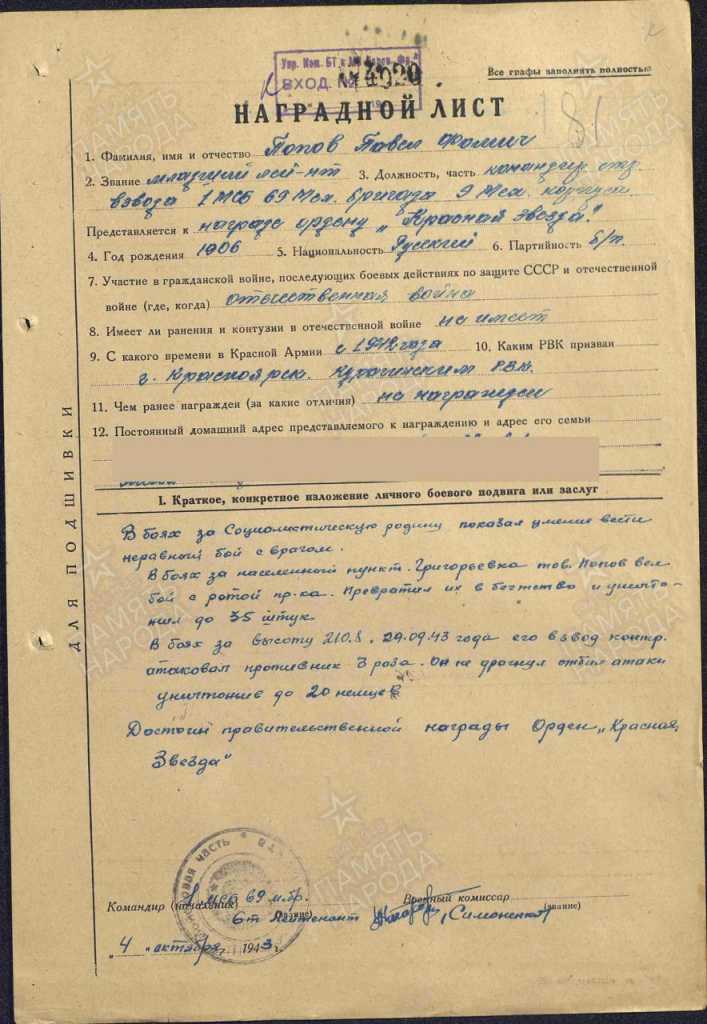 Упр. Ком. БТ и МВ
ВХОД. № 4020
Все графы заполнять полностью
181
НАГРАДНОЙ ЛИСТ
1. Фамилия, имя и отчество Попов Павел Фомич
2. Звание младший лей-нт 3. Должность, часть командир стр.
взвода 1 МСБ 69 Мех. бригада 9 Мех. корпуса
Представляется к награде ордену „Красная звезда".
4. Год рождения 1906 5. Национальность Русский 6. Партийность б/п.
7. Участие в гражданской войне, последующих боевых действиях по защите СССР и отечественной
войне (где, когда) отечественная война
8. Имеет ли ранения и контузии в отечественной войне не имеет
9. С какого времени в Красной Армии с 1942 года 10. Каким РВК призван
г. Красноярск. РВК.
11. Чем ранее награжден (за какие отличия) не награжден
12. Постоянный домашний адрес представляемого к награждению и адрес его семьи
I. Краткое, конкретное изложение личного боевого подвига или заслуг
В боях за Социалистическую родину показал умение вести
неравный бой с врагом.
В боях за населенный пункт. Григорьевка тов. Попов вел
бой с ротой пр-ка. Превратил их в бегство и уничто-
жил до 35 штук.
В боях за высоту 210.8, 29.09.43 года его взвод контр.
атаковал противник 3 раза. Он не дрогнул отбил атаки
уничтожив до 20 немцев
Достоин правительственной награды Орден „Красная
Звезда"
Командир (начальник) 1 МСБ 69 м.бр. Военный комиссар
ст. Лейтенант (звание) (Симоненко) (звание)
„4" октября 1943 г.
ДЛЯ ПОДШИВКИ
войсковая часть
ПАМЯТЬ НАРОДА